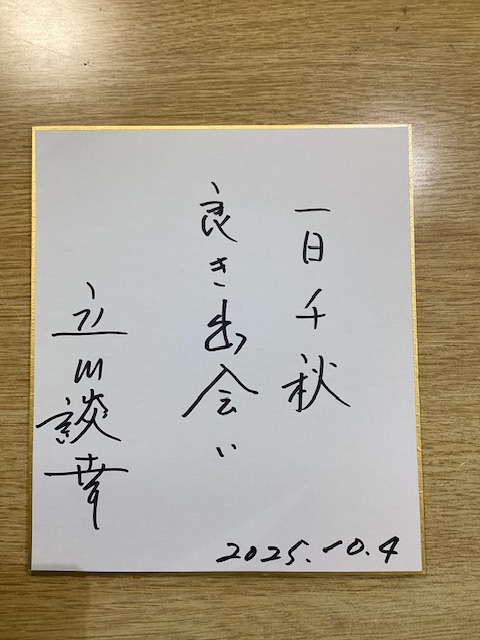 一日千秋
良き出会い
立川談幸
2025.10.4